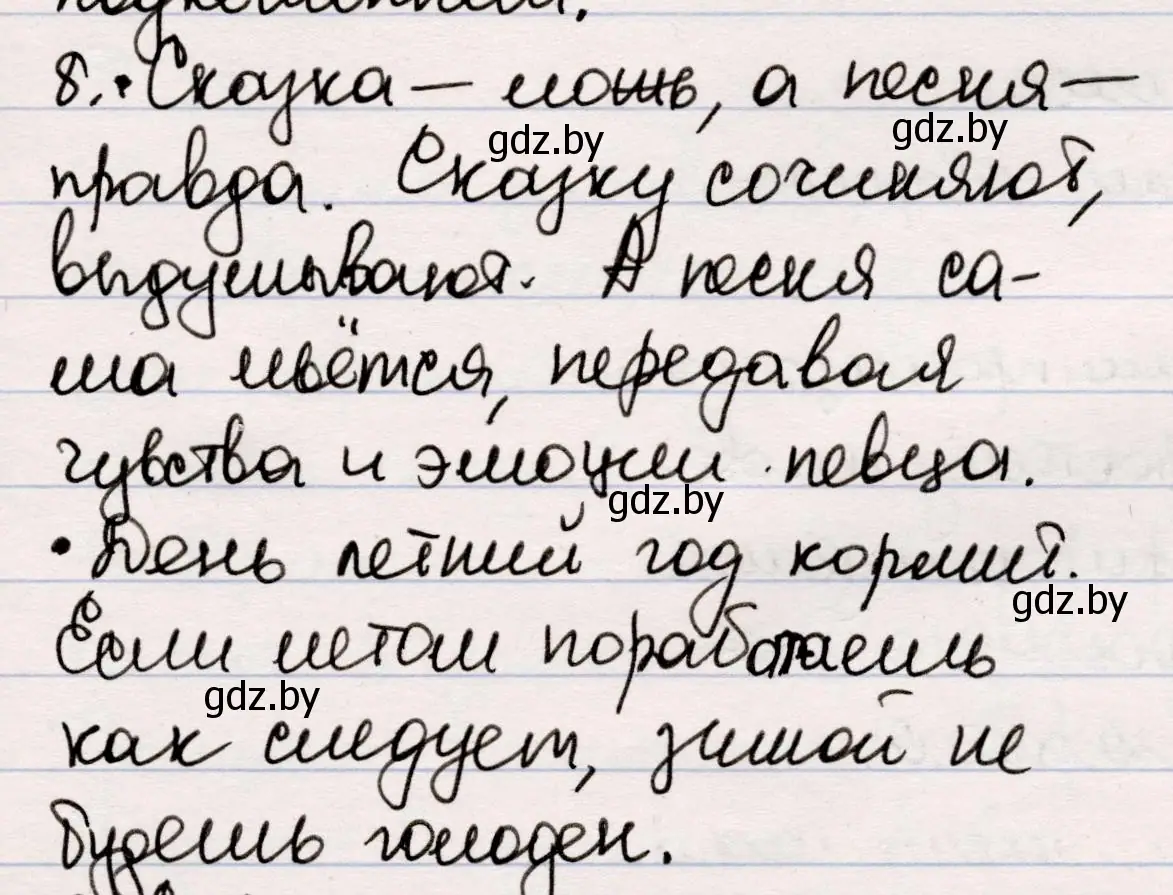 8. • Сказка — ложь, а песня —
gdz.by gdz.by
правда. Сказку сочиняют,
выдумывают. А песня са-
ма льётся, передавая
чувства и эмоции певца.
gdz.by
• День летний год кормит.
gdz.by
Если летом поработаешь
gdz.by
как следует, зимой не
будешь голоден.